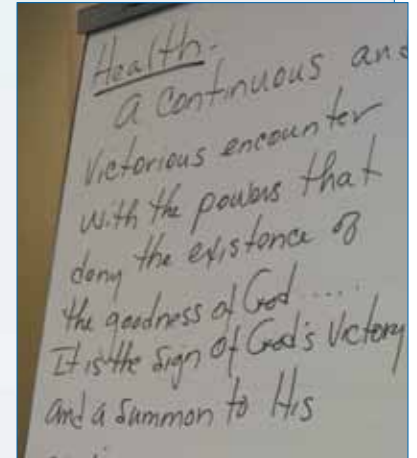 Health.
A Continuous and
Victorious encounter
with the powers that
deny the existence of
the goodness of God ....
It is the Sign of God's Victory
and a Summon to His